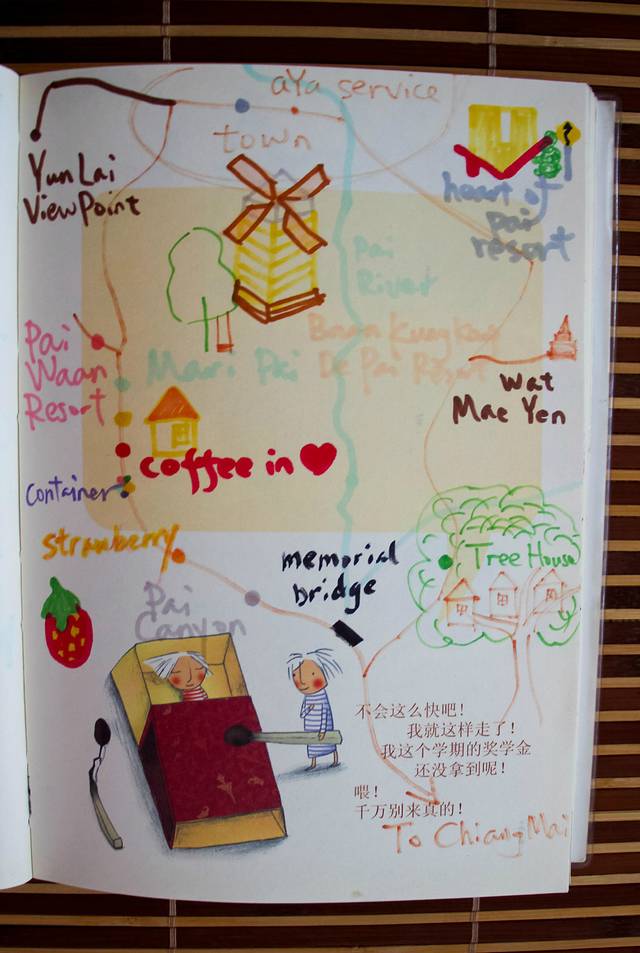 aYa service
town
Yun Lai
View Point
heart of
pai
resort
Pai
River
Pai
Waan
Resort
Mari Pai
Baan Kung Kang
De Pai Resort
Wat
Mae Yen
coffee in
container
strawberry
memorial
bridge
Tree House
Pai
Canyon
不会这么快吧！
我就这样走了！
我这个学期的奖学金
还没拿到呢！
喂！
千万别来真的！
To Chiang Mai